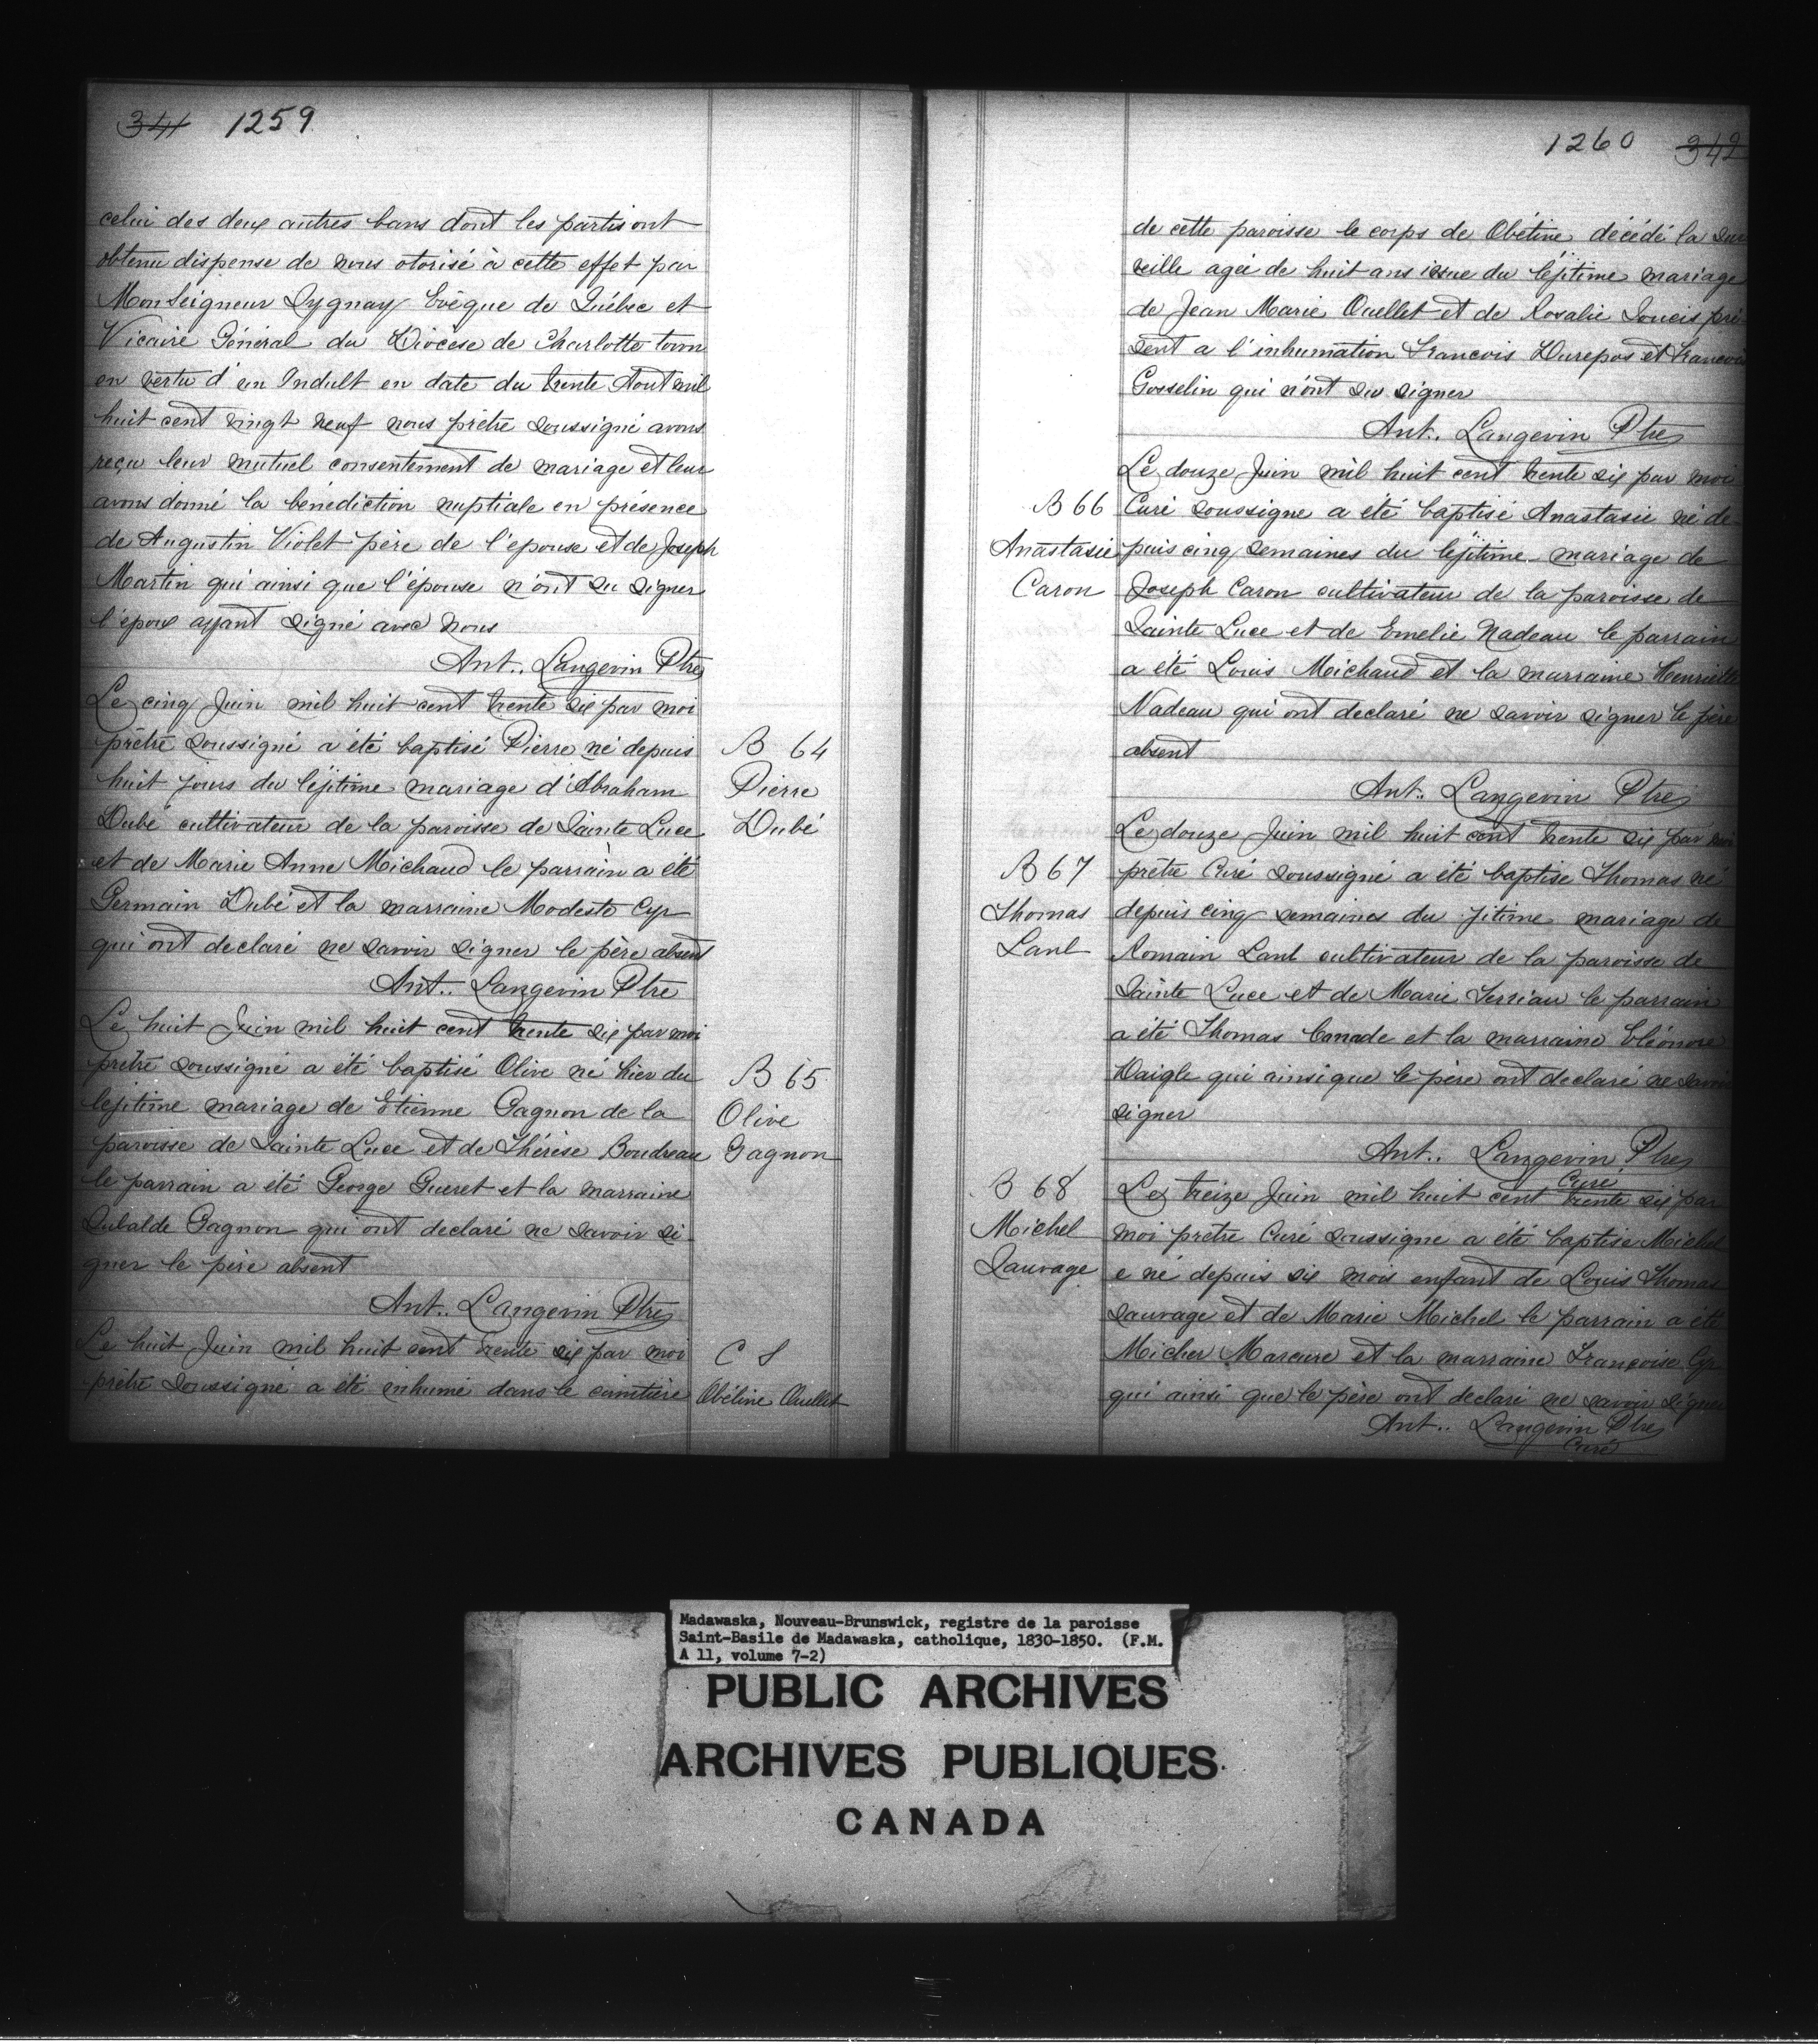 341 1259
celui des deux autres bans dont les partis ont
obtenu dispense de nous otorisé à cette effet par
Monseigneur Sygnay Evêque de Québec et
Vicaire Général du Diocèse de Charlotte town
en vertu d'un Indult en date du trente Aout mil
huit cent vingt neuf nous prêtre soussigné avons
reçu leur mutuel consentement de mariage et leur
avons donné la bénédiction nuptiale en présence
de Augustin Violet père de l'epouse et de Joseph
Martin qui ainsi que l'épouse n'ont su signer
l'epoux ayant signé avec nous
Ant.. Langevin Ptre
Le cinq Juin mil huit cent trente six par moi
prêtre soussigné a été baptisé Pierre né depuis
huit jours du léjitime mariage d'Abraham
Dubé cultivateur de la paroisse de Sainte Luce
et de Marie Anne Michaud le parrain a été
Germain Dubé et la marraine Modeste Cyr
qui ont declaré ne savoir signer le père absent
Ant.. Langevin Ptre
B 64
Pierre
Dubé
Le huit Juin mil huit cent trente six par moi
prêtre soussigné a été baptisé Olive né hier du
lejitime mariage de Etienne Gagnon de la
paroisse de Sainte Luce et de Thérèse Boudreau
le parrain a été George Gueret et la marraine
Gagnon qui ont declaré ne savoir si
gner le père absent
Ant.. Langevin Ptre
B 65
Olive
Gagnon
Le huit Juin mil huit cent trente six par moi
prêtre soussigné a été inhumé dans le cimitière
C S
Obéline Ouellet
1260 342
de cette paroisse le corps de Obéline décédé la sur
veille agée de huit ans issue du léjitime mariage
de Jean Marie Ouellet et de Rosalie Soucis pré
sent a l'inhumation Francois Durepos et Francois
Gosselin qui n'ont su signer
Ant.. Langevin Ptre
Le douze Juin mil huit cent trente six par moi
B 66 Curé soussigne a été baptisé Anastasie né de
Anastasie puis cinq semaines du lejitime mariage de
Caron Joseph Caron cultivateur de la paroisse de
Sainte Luce et de Emelie Nadeau le parrain
a été Louis Michaud et la marraine Henriette
Nadeau qui ont declaré ne savoir signer le père
absent
Ant.. Langevin Ptre
Le douze Juin mil huit cent trente six par moi
B 67 prêtre Curé soussigné a été baptise Thomas né
Thomas depuis cinq semaines du jitime mariage de
Romain cultivateur de la paroisse de
Sainte Luce et de Marie Terriau le parrain
a été Thomas Canade et la marraine Eléonore
Daigle qui ainsi que le père ont declaré ne savoir
signer
Ant.. Langevin Ptre
Curé
B 68 Le treize Juin mil huit cent trente six par
Michel moi prêtre Curé soussigne a été baptise Michel
Sauvage e né depuis six mois enfant de Louis Thomas
sauvage et de Marie Michel le parrain a été
Micher Marcure et la marraine Françoise Cyr
qui ainsi que le père ont declaré ne savoir signer
Ant.. Langevin Ptre
Curé
Madawaska, Nouveau-Brunswick, registre de la paroisse
Saint-Basile de Madawaska, catholique, 1830-1850. (F.M.
A 11, volume 7-2)
PUBLIC ARCHIVES
ARCHIVES PUBLIQUES
CANADA